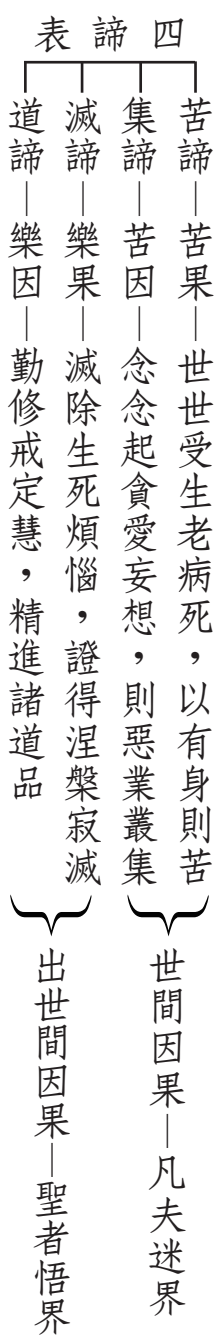 四諦表
苦諦—苦果—世世受生老病死，以有身則苦
集諦—苦因—念念起貪愛妄想，則惡業叢集
世間因果—凡夫迷界
滅諦—樂果—滅除生死煩惱，證得涅槃寂滅
道諦—樂因—勤修戒定慧，精進諸道品
出世間因果—聖者悟界